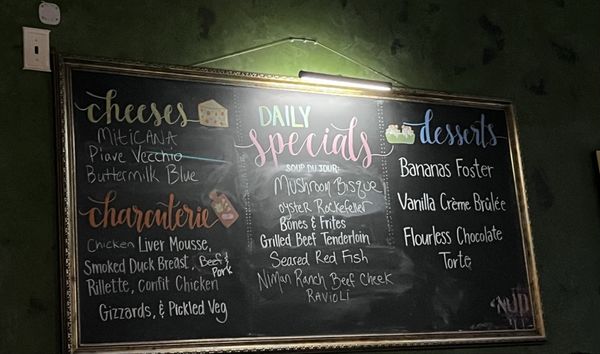 cheeses
MitiCANA
Piave Vecchio
Buttermilk Blue
charcuterie
Chicken Liver Mousse,
Smoked Duck Breast, Beef &
Pork
Rillette, Confit Chicken
Gizzards, & Pickled Veg
DAILY
specials
SOUP DU JOUR:
Mushroom Bisque
oyster Rockefeller
Bones & Frites
Grilled Beef Tenderloin
Seared Red Fish
Niman Ranch Beef Cheek
RAVIOLI
desserts
Bananas Foster
Vanilla Crème Brûlée
Flourless Chocolate
Torte